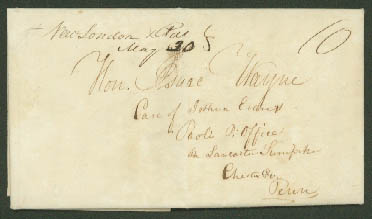 New London X Rds
May 30
10
Hon. Isaac Wayne
Care of Joshua Evans
Paoli P. Office
on Lancaster Turnpike
Chester Co.
Penn